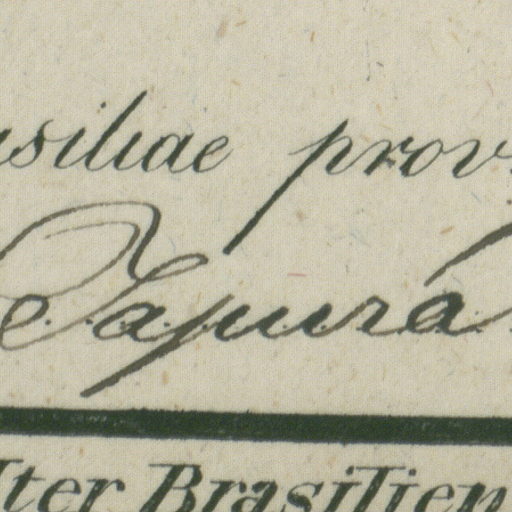 siliae prov
Japurá
Iter Brasilien